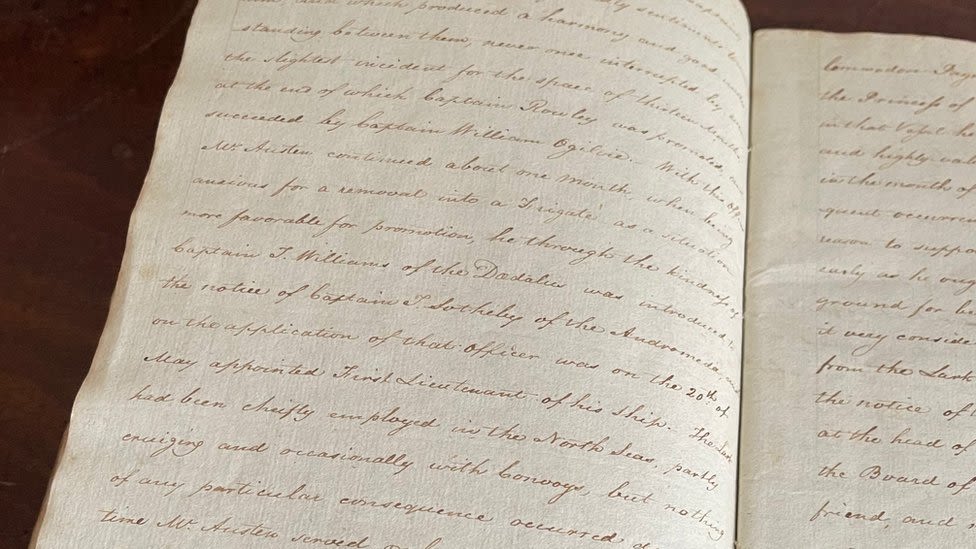 and which produced a harmony and good under
standing between them, never once interrupted by
the slightest incident for the space of thirteen months
at the end of which Captain Rowley was promoted, and
succeeded by Captain William Ogilvie. With this Offr.
Mr. Austen continued about one month, when being
anxious for a removal into a Frigate as a situation
more favorable for promotion, he through the kindness of
Captain T. Williams of the Dædalus was introduced to
the notice of Captain T. Sotheby of the Andromeda, and
on the application of that officer was on the 20th. of
May appointed First Lieutenant of his Ship. The Lark
had been cheifly employed in the North Seas, partly
cruizing and occasionally with Convoys, but nothing
of any particular consequence occurred
time Mr. Austen served
Commodore
the Princess of
in that Vessel he
and highly
in the months of
quent
reason to suppo
early as he
ground for be
it very conside
from the Lark
the notice of
at the head of
the Board of
friend, and